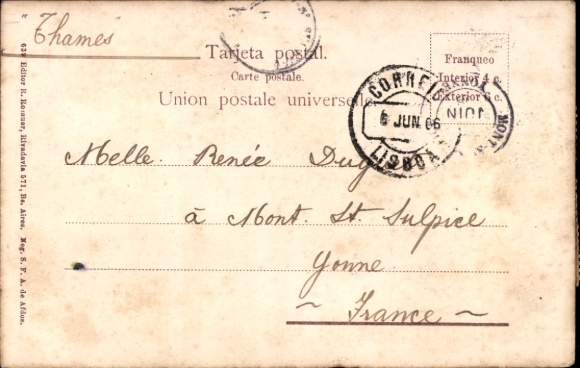 Thames
Tarjeta postal.
Carte postale.
Union postale universelle.
Franqueo
Interior 4 c.
Exterior 6 c.
CORREIO
6 JUN 06
LISBOA
YONNE
JUIN
MONT-S
Melle. Renée
à Mont. St. Sulpice
Yonne
~ France ~
Editor R. Rosauer, Rivadavia 571, Bs. Aires. Neg. S. F. A. de Afdos.